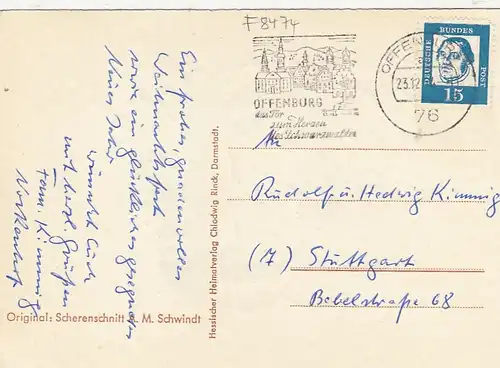 F 8474
Ein frohes, gnadenvolles
Weihnachtsfest
sowie ein glückliches gesegnetes
Neues Jahr
wünscht Euch
mit herzl. Grüßen
Fam. Kimmig
OFFENBURG
das Tor
zum Herzen
des Schwarzwaldes
OFFEN
23.12
76
DEUTSCHE
BUNDES
POST
15
An
Rudolf u. Hedwig Kimmig
(7) Stuttgart
Bebelstraße 68
Hessischer Heimatverlag Chlodwig Rinck, Darmstadt.
Original: Scherenschnitt M. Schwindt